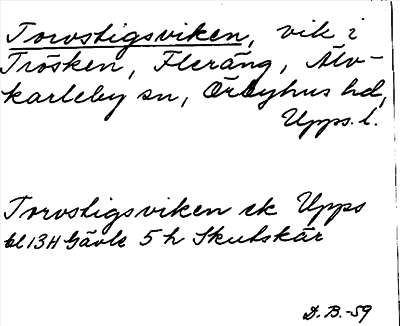 Torvstigsviken, vik i
Trösken, Fleräng, Älv-
karleby sn, Örbyhus hd,
Upps. l.
Torvstigsviken ek Upps
bl 13H Gävle 5 h Skutskär
D.B.-59